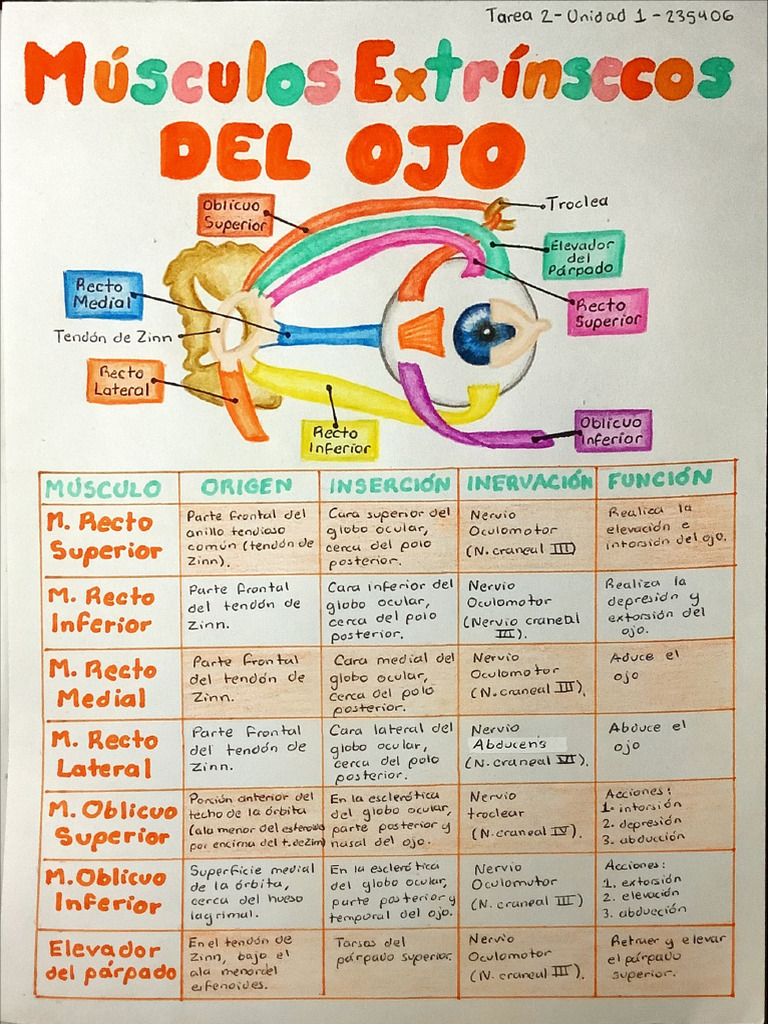 Tarea 2-Unidad 1-235406
Músculos Extrínsecos
DEL OJO
Oblicuo
Superior
Troclea
Elevador
del
Párpado
Recto
Medial
Recto
Superior
Tendón de Zinn
Recto
Lateral
Recto
Inferior
Oblicuo
Inferior
MÚSCULO ORIGEN INSERCIÓN INERVACIÓN FUNCIÓN
M. Recto
Superior
Parte frontal del
anillo tendioso
común (tendón de
Zinn).
Cara superior del
globo ocular,
cerca del polo
posterior.
Nervio
Oculomotor
(N. craneal III)
Realiza la
elevación e
intorsión del ojo.
M. Recto
Inferior
Parte frontal
del tendón de
Zinn.
Cara inferior del
globo ocular,
cerca del polo
posterior.
Nervio
Oculomotor
(Nervio craneal
III).
Realiza la
depresión y
extorsión del
ojo.
M. Recto
Medial
Parte frontal
del tendón de
Zinn.
Cara medial del
globo ocular,
cerca del polo
posterior.
Nervio
Oculomotor
(N. craneal III).
Aduce el
ojo
M. Recto
Lateral
Parte frontal
del tendón de
Zinn.
Cara lateral del
globo ocular,
cerca del polo
posterior.
Nervio
Abducens
(N. craneal VI).
Abduce el
ojo
M. Oblicuo
Superior
Porción anterior del
techo de la órbita
(ala menor del esfenoides
por encima del t. de Zinn)
En la esclerótica
del globo ocular,
parte posterior y
nasal del ojo.
Nervio
troclear
(N. craneal IV).
Acciones:
1. intorsión
2. depresión
3. abducción
M. Oblicuo
Inferior
Superficie medial
de la órbita,
cerca del hueso
lagrimal.
En la esclerótica
del globo ocular,
parte posterior y
temporal del ojo.
Nervio
Oculomotor
(N. craneal III).
Acciones:
1. extorsión
2. elevación
3. abducción
Elevador
del párpado
En el tendón de
Zinn, bajo el
ala menor del
esfenoides.
Tarsos del
párpado superior.
Nervio
Oculomotor
(N. craneal III).
Retraer y elevar
el párpado
superior.